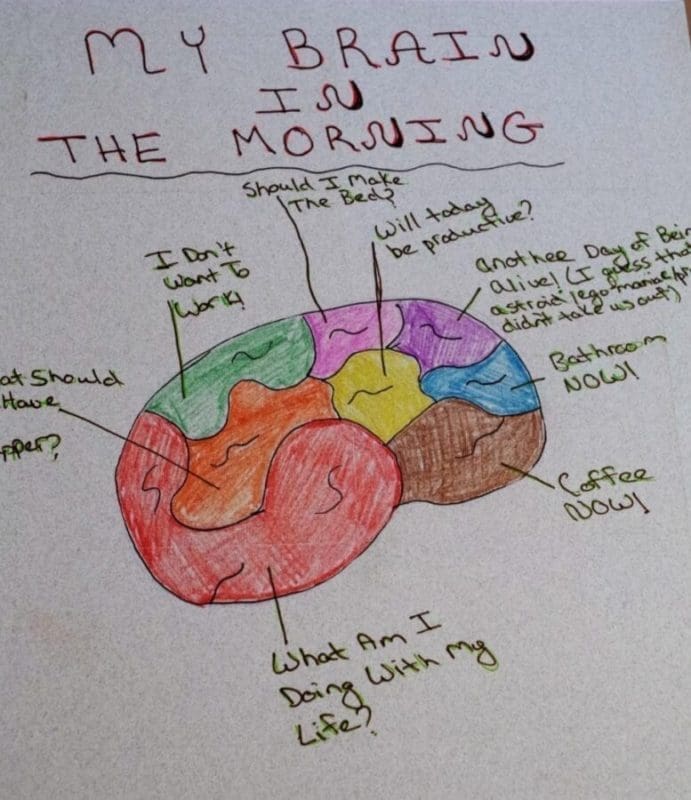 MY BRAIN
IN
THE MORNING
Should I Make
The Bed?
Will today
be productive?
I Don't
Want To
Work!
another Day of Bein
alive! (I guess tha
astroid/egomaniac/pr
didn't take us out)
Bathroom
NOW!
at Should
Have
pper?
Coffee
NOW!
What Am I
Doing With My
Life?